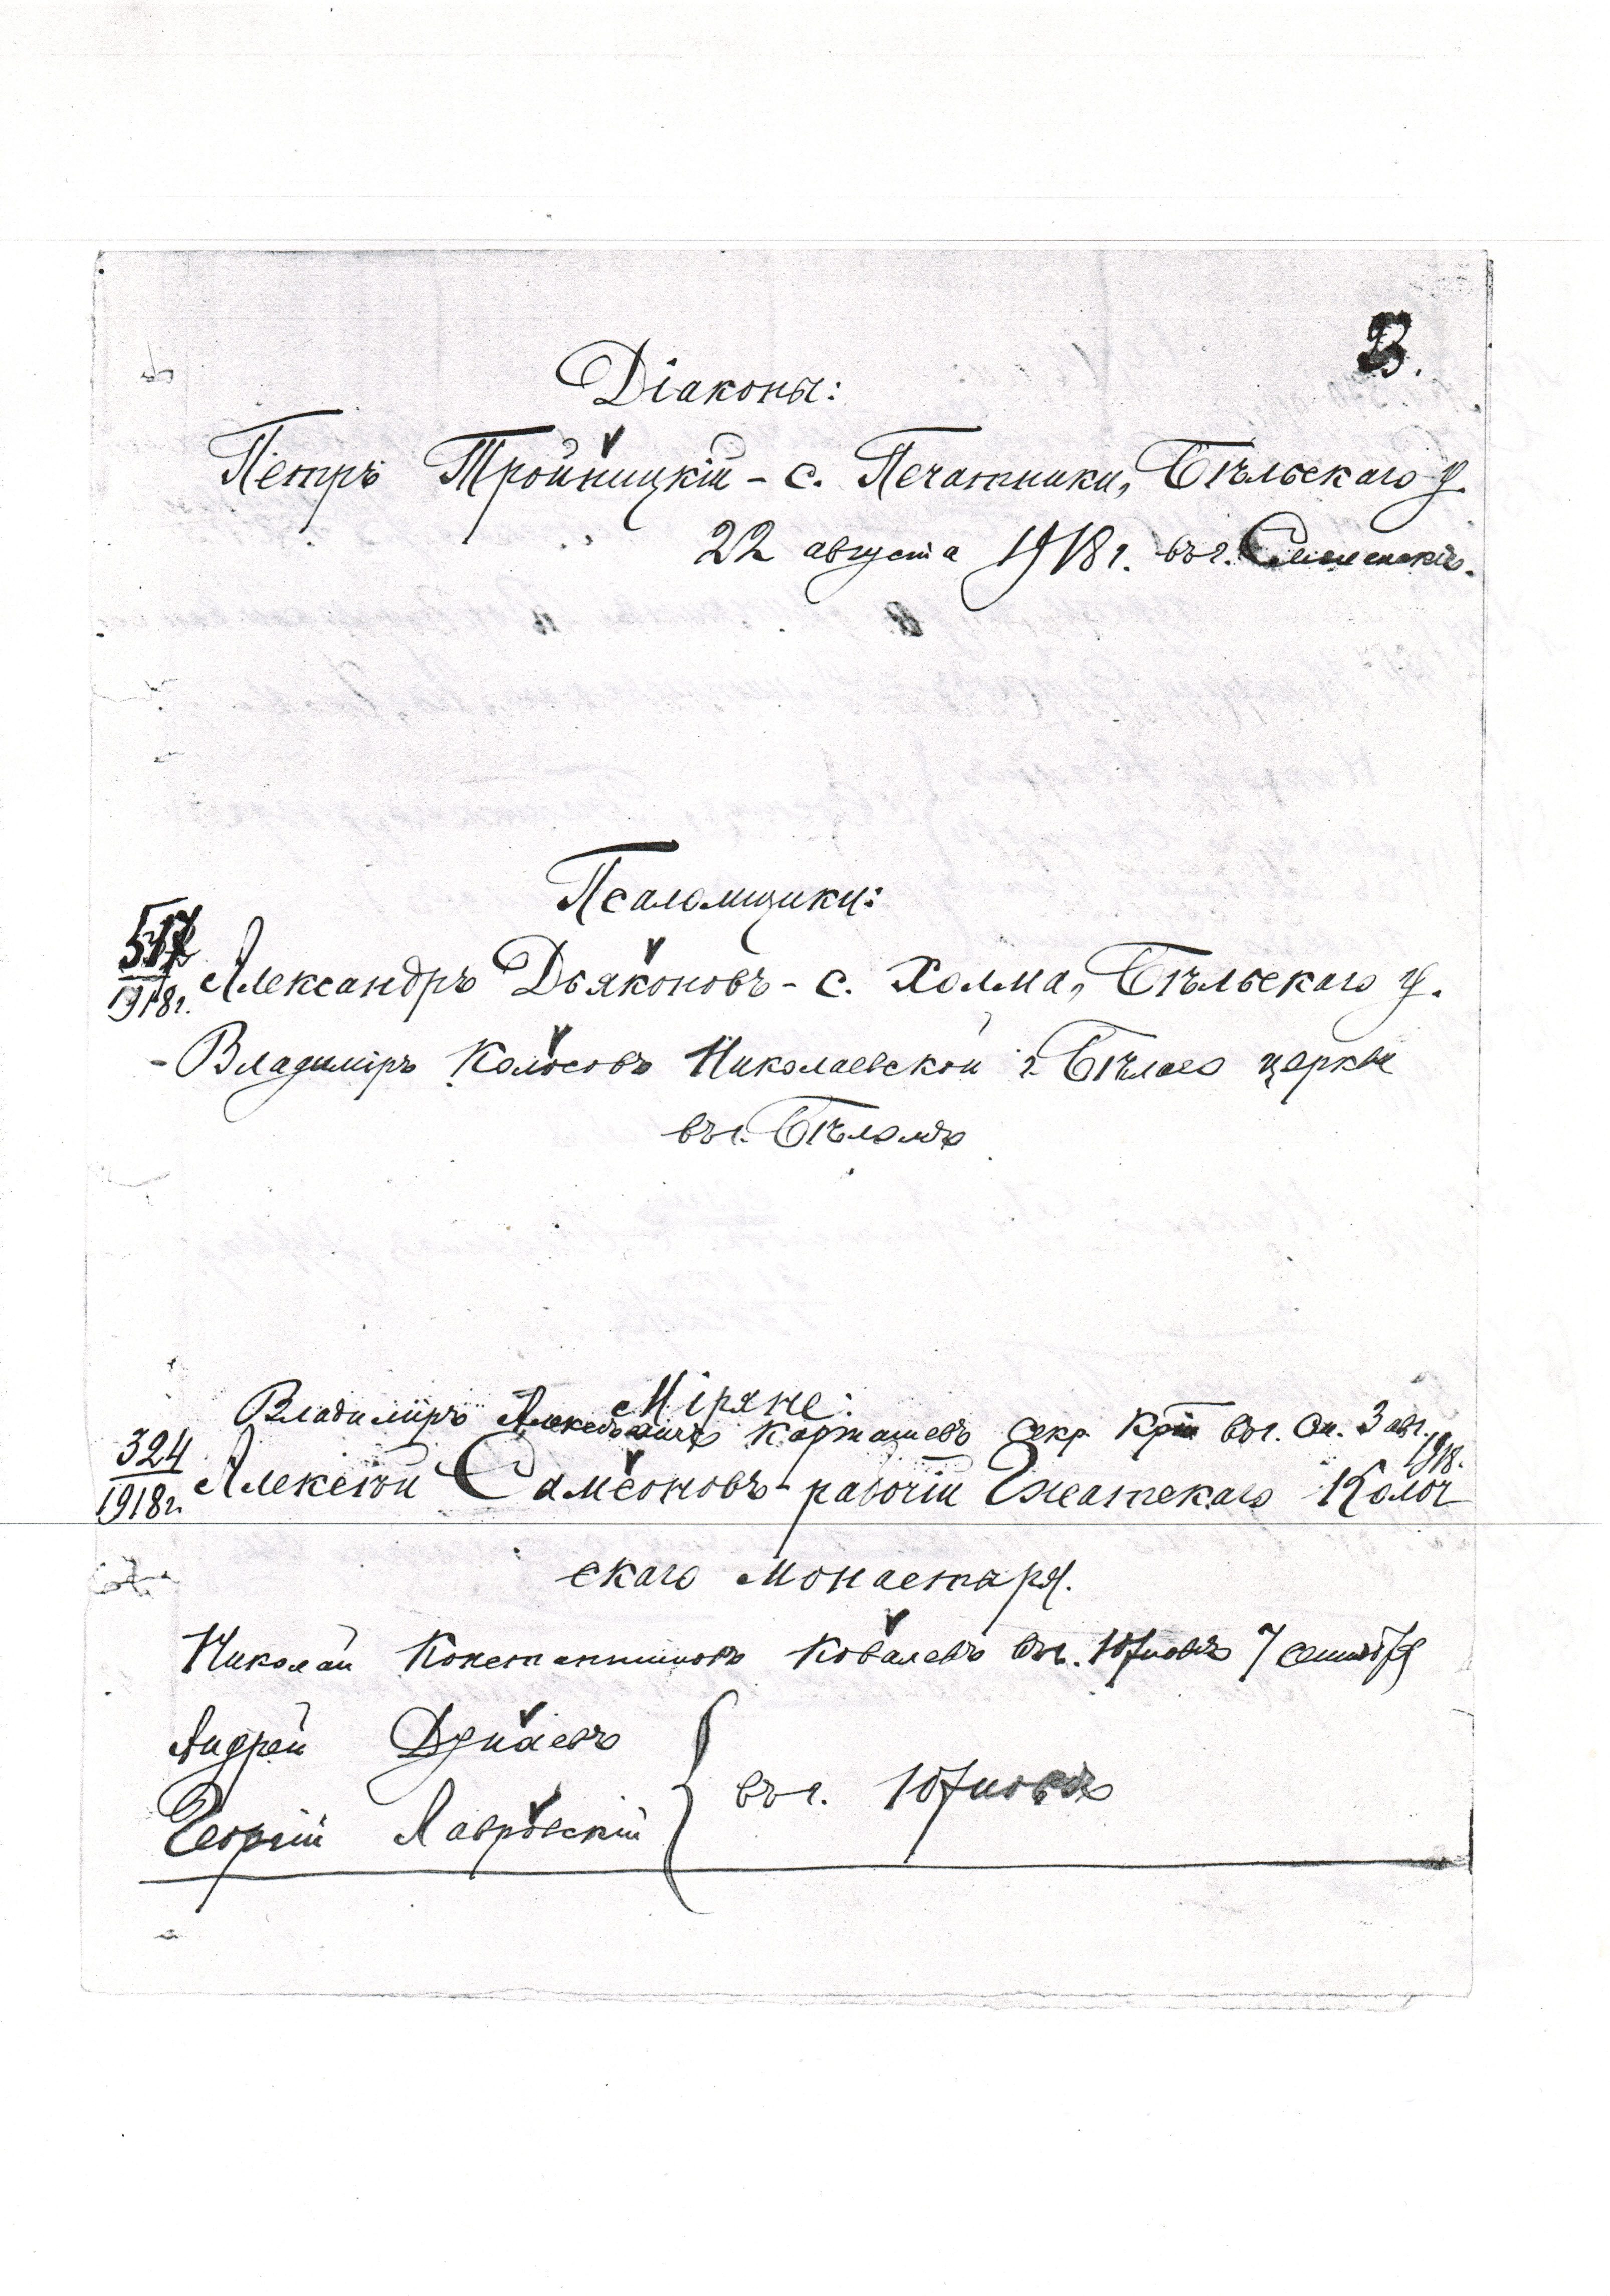 Діаконы:
Петръ Тройницкій - с. Печатники, Бѣльскаго у.
22 августа 1918 г. въ г. Смоленскѣ.
Псаломщики:
1918 г. Александръ Дьяконовъ - с. Холма, Бѣльскаго у.
- Владиміръ Колосовъ Николаевской г. Бѣлаго церкви
въ г. Бѣломъ
Міряне:
Владиміръ Алексѣевичъ Карташевъ секр. въ г. См. 3 авг. 1918.
324
1918 г. Алексѣй Самсоновъ - рабочій Гжатскаго Колоч
скаго монастыря.
Николай Константиновъ Ковалевъ въ г. Юхновѣ 7 сентября
Андрей Дунаевъ
въ г. Юхновѣ
Георгій Лавровскій